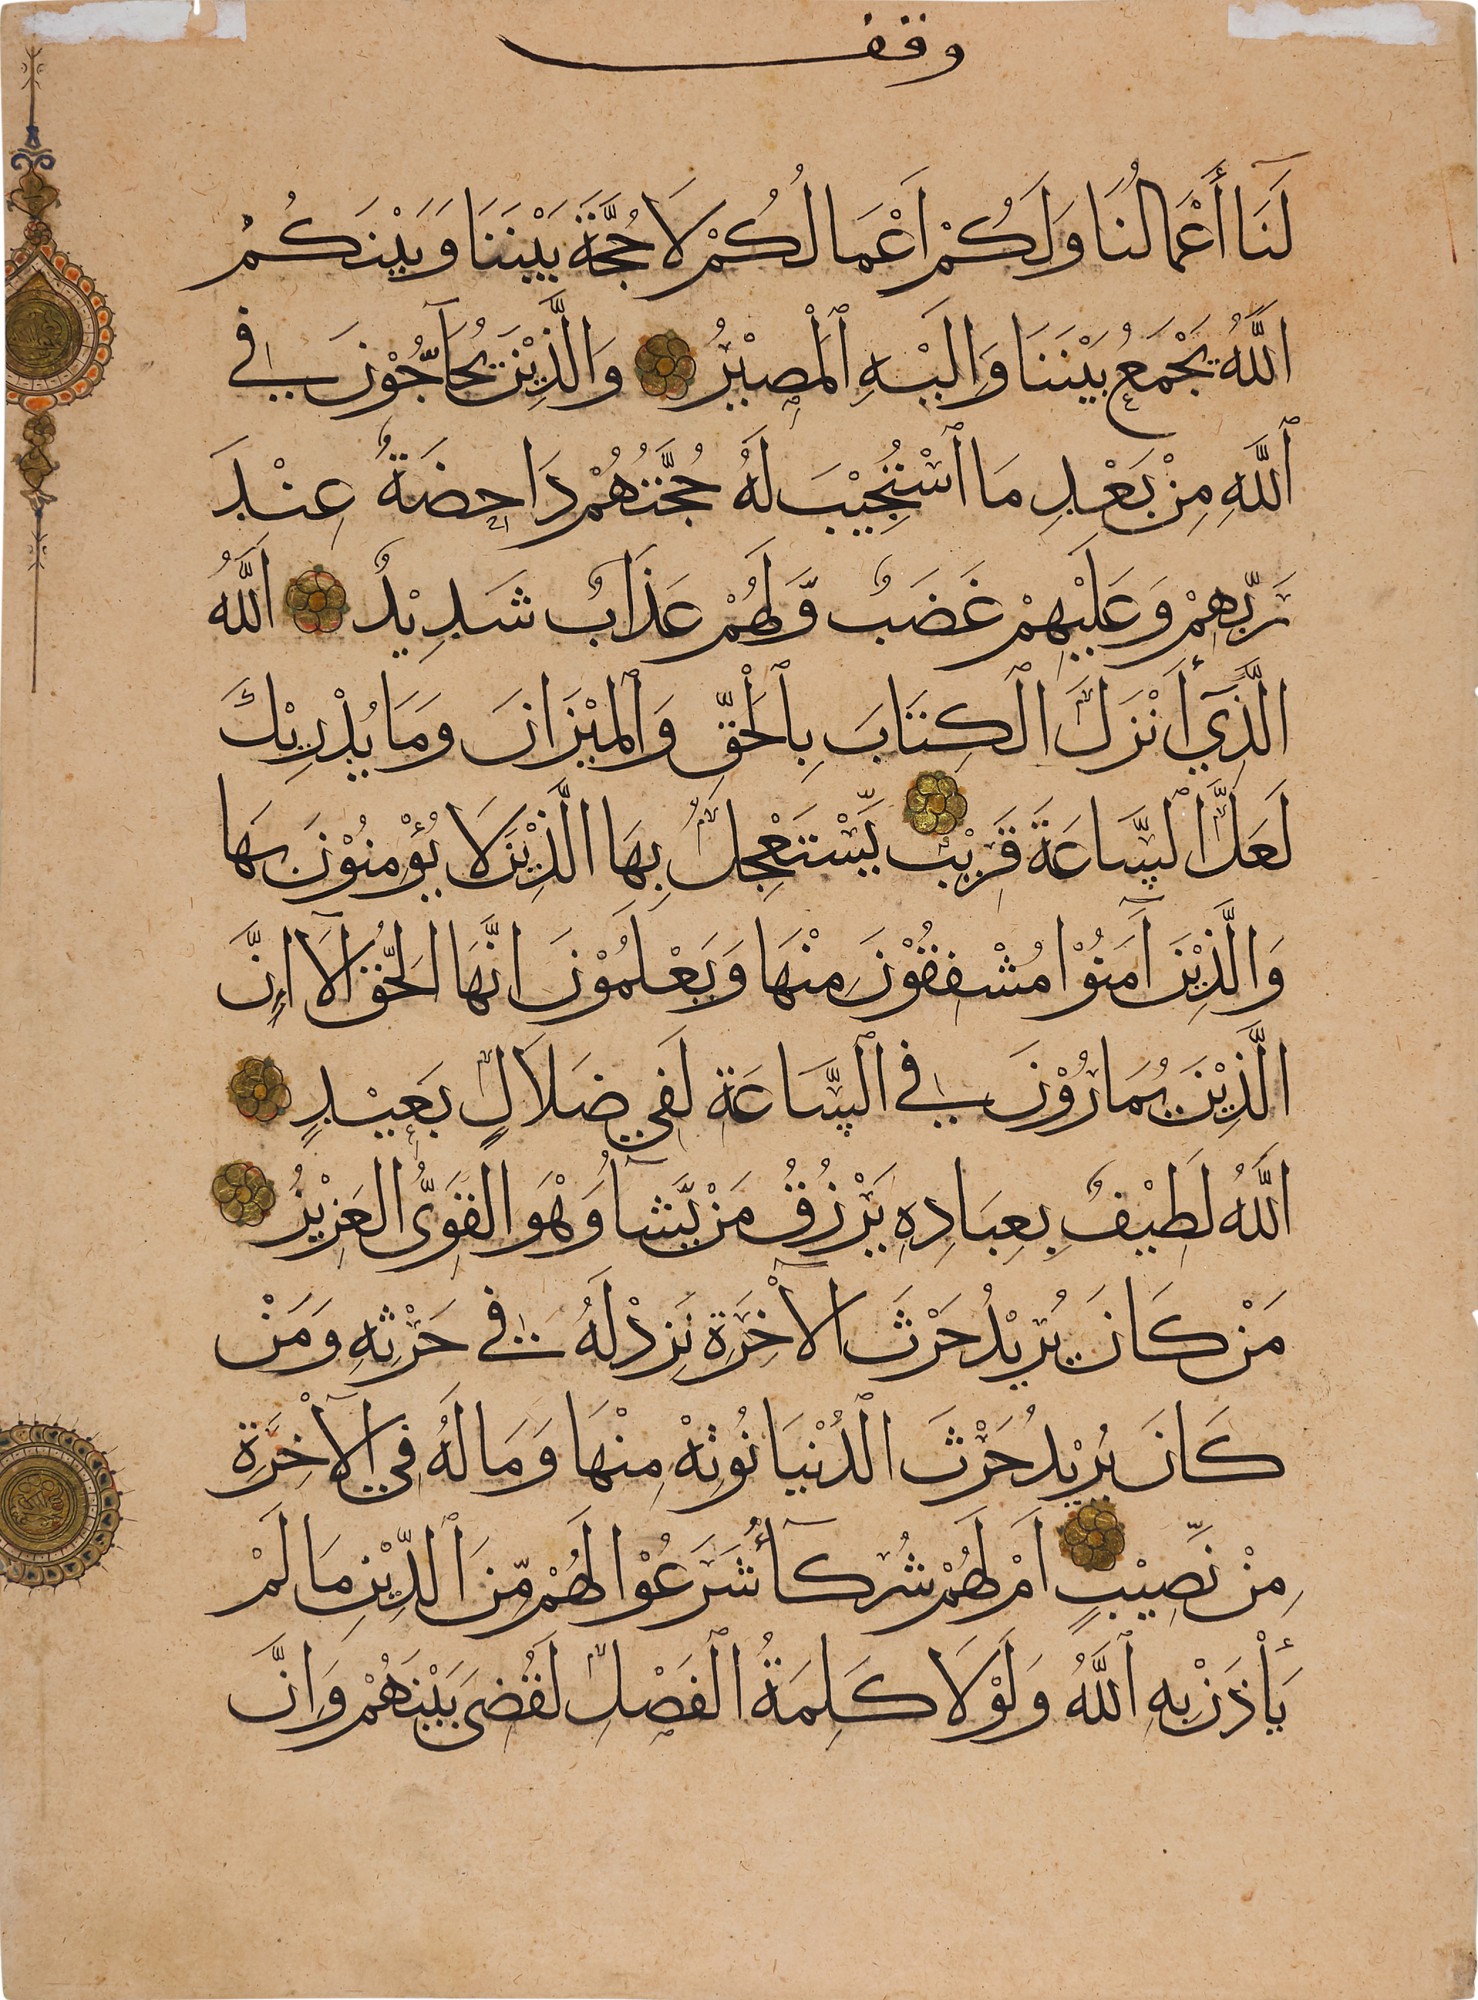 وقف
لَنَا أَعْمَالُنَا وَلَكُمْ اَعْمَالُكُمْ لَا حُجَّةَ بَيْنَنَا وَبَيْنَكُمْ
اللَّهُ يَجْمَعُ بَيْنَنَا وَاِلَيْهِ ٱلْمَصِيْرُ وَالَّذِيْنَ يُحَآجُّوْنَ فِي
ٱللَّهِ مِنْ بَعْدِ مَا ٱسْتُجِيْبَ لَهُ حُجَّتُهُمْ دَاحِضَةٌ عِنْدَ
رَبِّهِمْ وَعَلَيْهِمْ غَضَبٌ وَّلَهُمْ عَذَابٌ شَدِيْدٌ اَللَّهُ
الَّذِيٓ أَنْزَلَ ٱلْكِتَابَ بِٱلْحَقِّ وَٱلْمِيْزَانَ وَمَا يُدْرِيْكَ
لَعَلَّ ٱلسَّاعَةَ قَرِيْبٌ يَّسْتَعْجِلُ بِهَا الَّذِيْنَ لَا يُؤْمِنُوْنَ بِهَا
وَالَّذِيْنَ آمَنُوْا مُشْفِقُوْنَ مِنْهَا وَيَعْلَمُوْنَ انَّهَا الْحَقُّ اَلَآ إِنَّ
الَّذِيْنَ يُمَارُوْنَ فِي ٱلسَّاعَةِ لَفِي ضَلَالٍ بَعِيْدٍ
اللَّهُ لَطِيْفٌ بِعِبَادِهِ يَرْزُقُ مَنْ يَّشَآءُ وَهْوَ الْقَوِيُّ الْعَزِيْزُ
مَنْ كَانَ يُرِيْدُ حَرْثَ الْآخِرَةِ نَزِدْ لَهُ فِي حَرْثِهِ وَمَنْ
كَانَ يُرِيْدُ حَرْثَ ٱلدُّنْيَا نُوتِهْ مِنْهَا وَمَا لَهُ فِي الْآخِرَةِ
مِنْ نَّصِيْبٍ اَمْ لَهُمْ شُرَكَآءُ شَرَعُوْا لَهُمْ مِّنَ ٱلدِّيْنِ مَا لَمْ
يَأْذَنْ بِهِ ٱللَّهُ وَلَوْلَا كَلِمَةُ ٱلْفَصْلِ لَقُضِيَ بَيْنَهُمْ وَاِنَّ